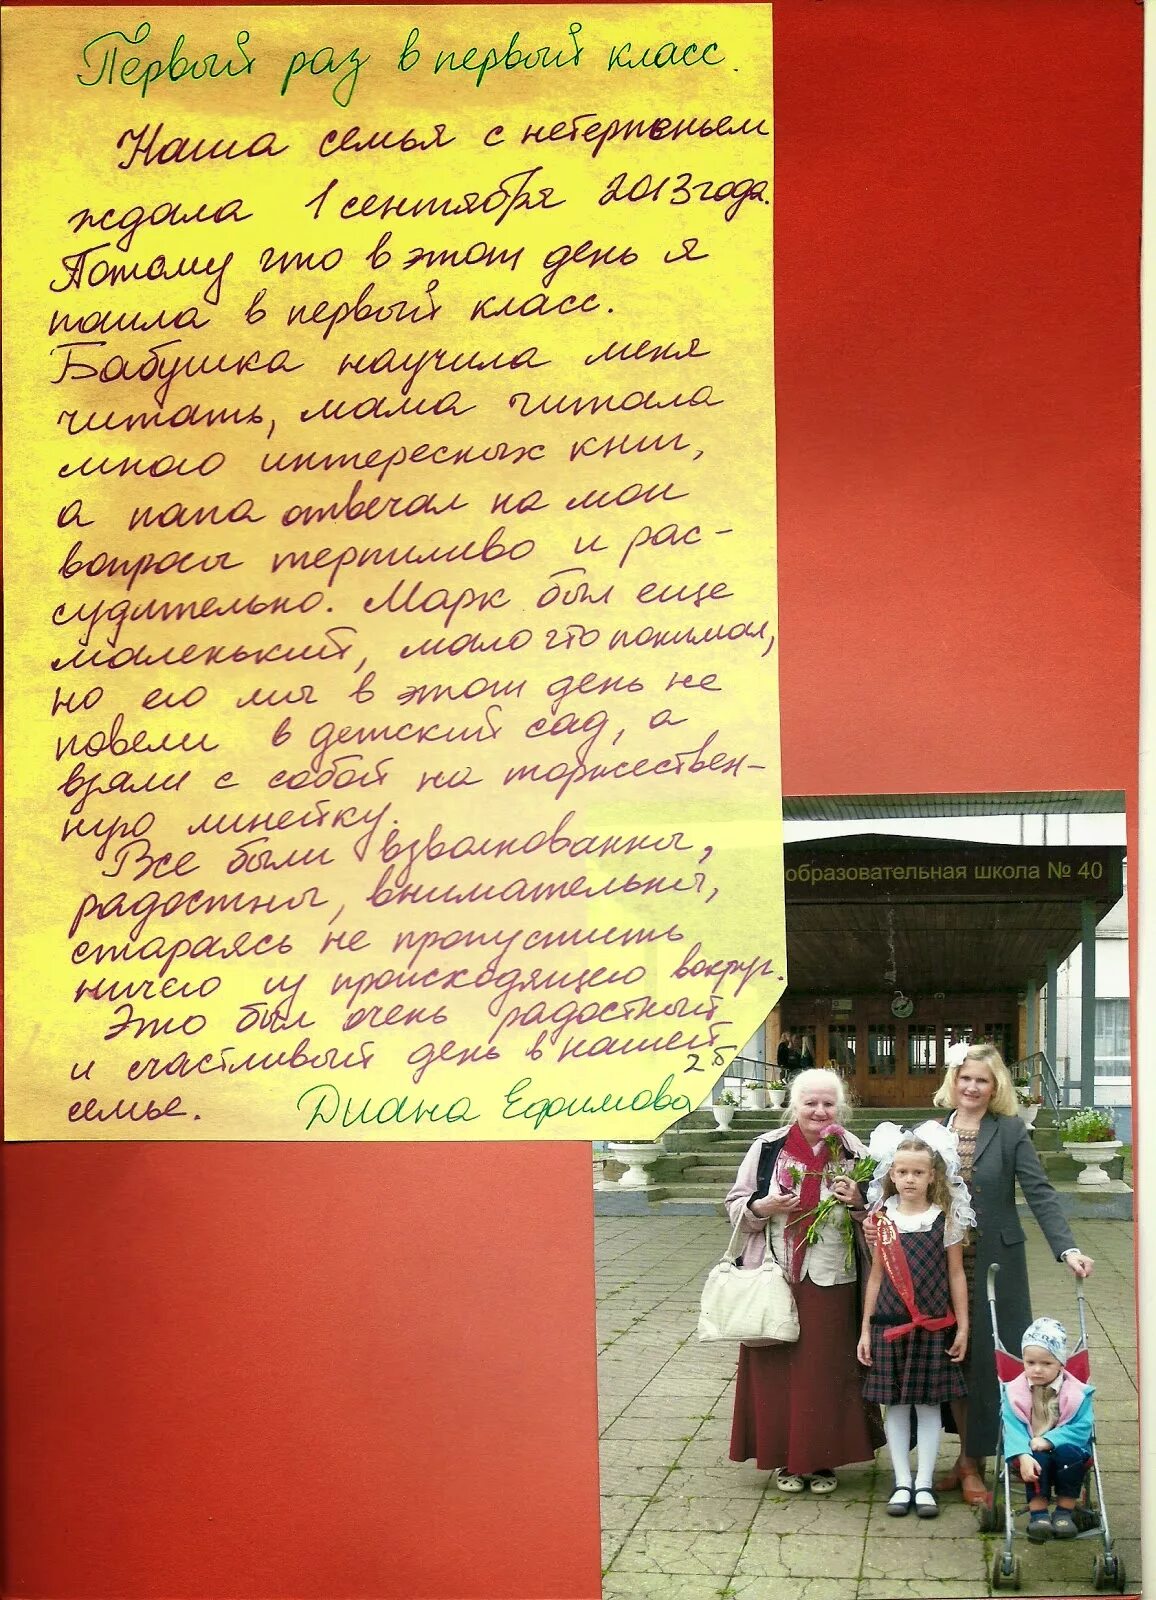 Первый раз в первый класс.
Наша семья с нетерпеньем
ждала 1 сентября 2013 года.
Потому что в этот день я
пошла в первый класс.
Бабушка научила меня
читать, мама читала
много интересных книг,
а папа отвечал на мои
вопросы терпиливо и рас-
судительно. Марк был еще
маленький, мало что понимал,
но его мы в этот день не
повели в детский сад, а
взяли с собой на торжествен-
ную линейку.
Все были взволнованны,
радостны, внимательны,
стараясь не пропустить
ничего из происходящего вокруг.
Это был очень радостный
и счастливый день в нашей
семье.
2 б
Диана Ефимова
образовательная школа № 40